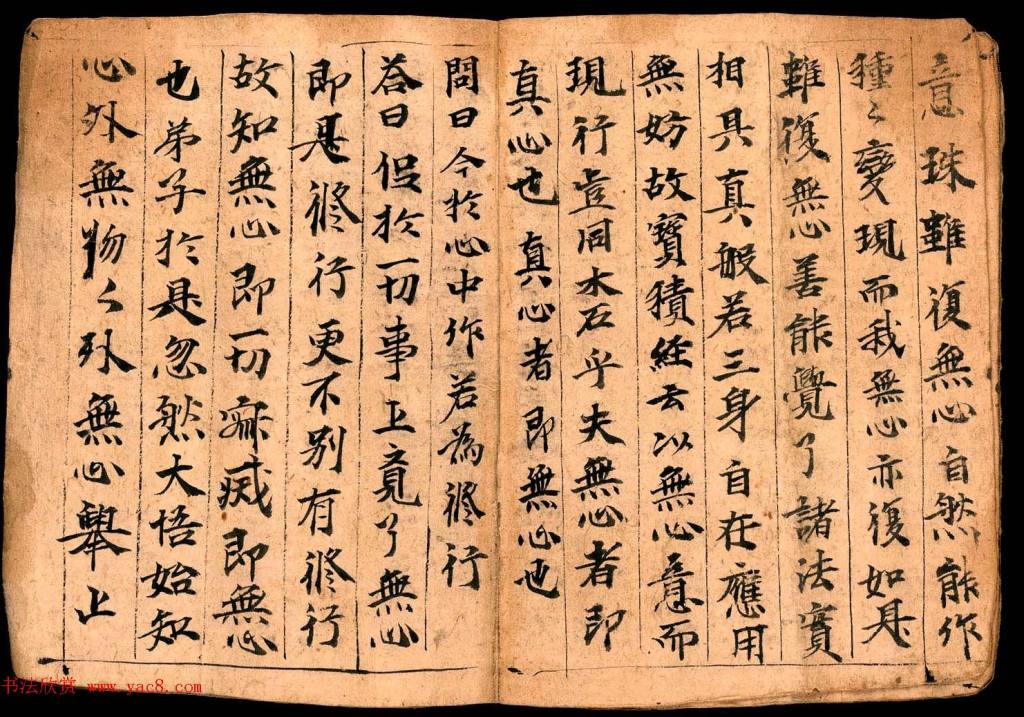 意珠雖復無心自然能作
種々變現而我無心亦復如是
雖復無心善能覺了諸法實
相具真般若三身自在應用
無妨故寶積經云以無心意而
現行豈同木石乎夫無心者即
真心也真心者即無心也
問曰今於心中作若為修行
荅曰但於一切事上覓了無心
即是修行更不別有修行
故知無心即一切寂滅即無心
也弟子於是忽然大悟始知
心外無物々外無心舉止
书法欣赏 www.yac8.com